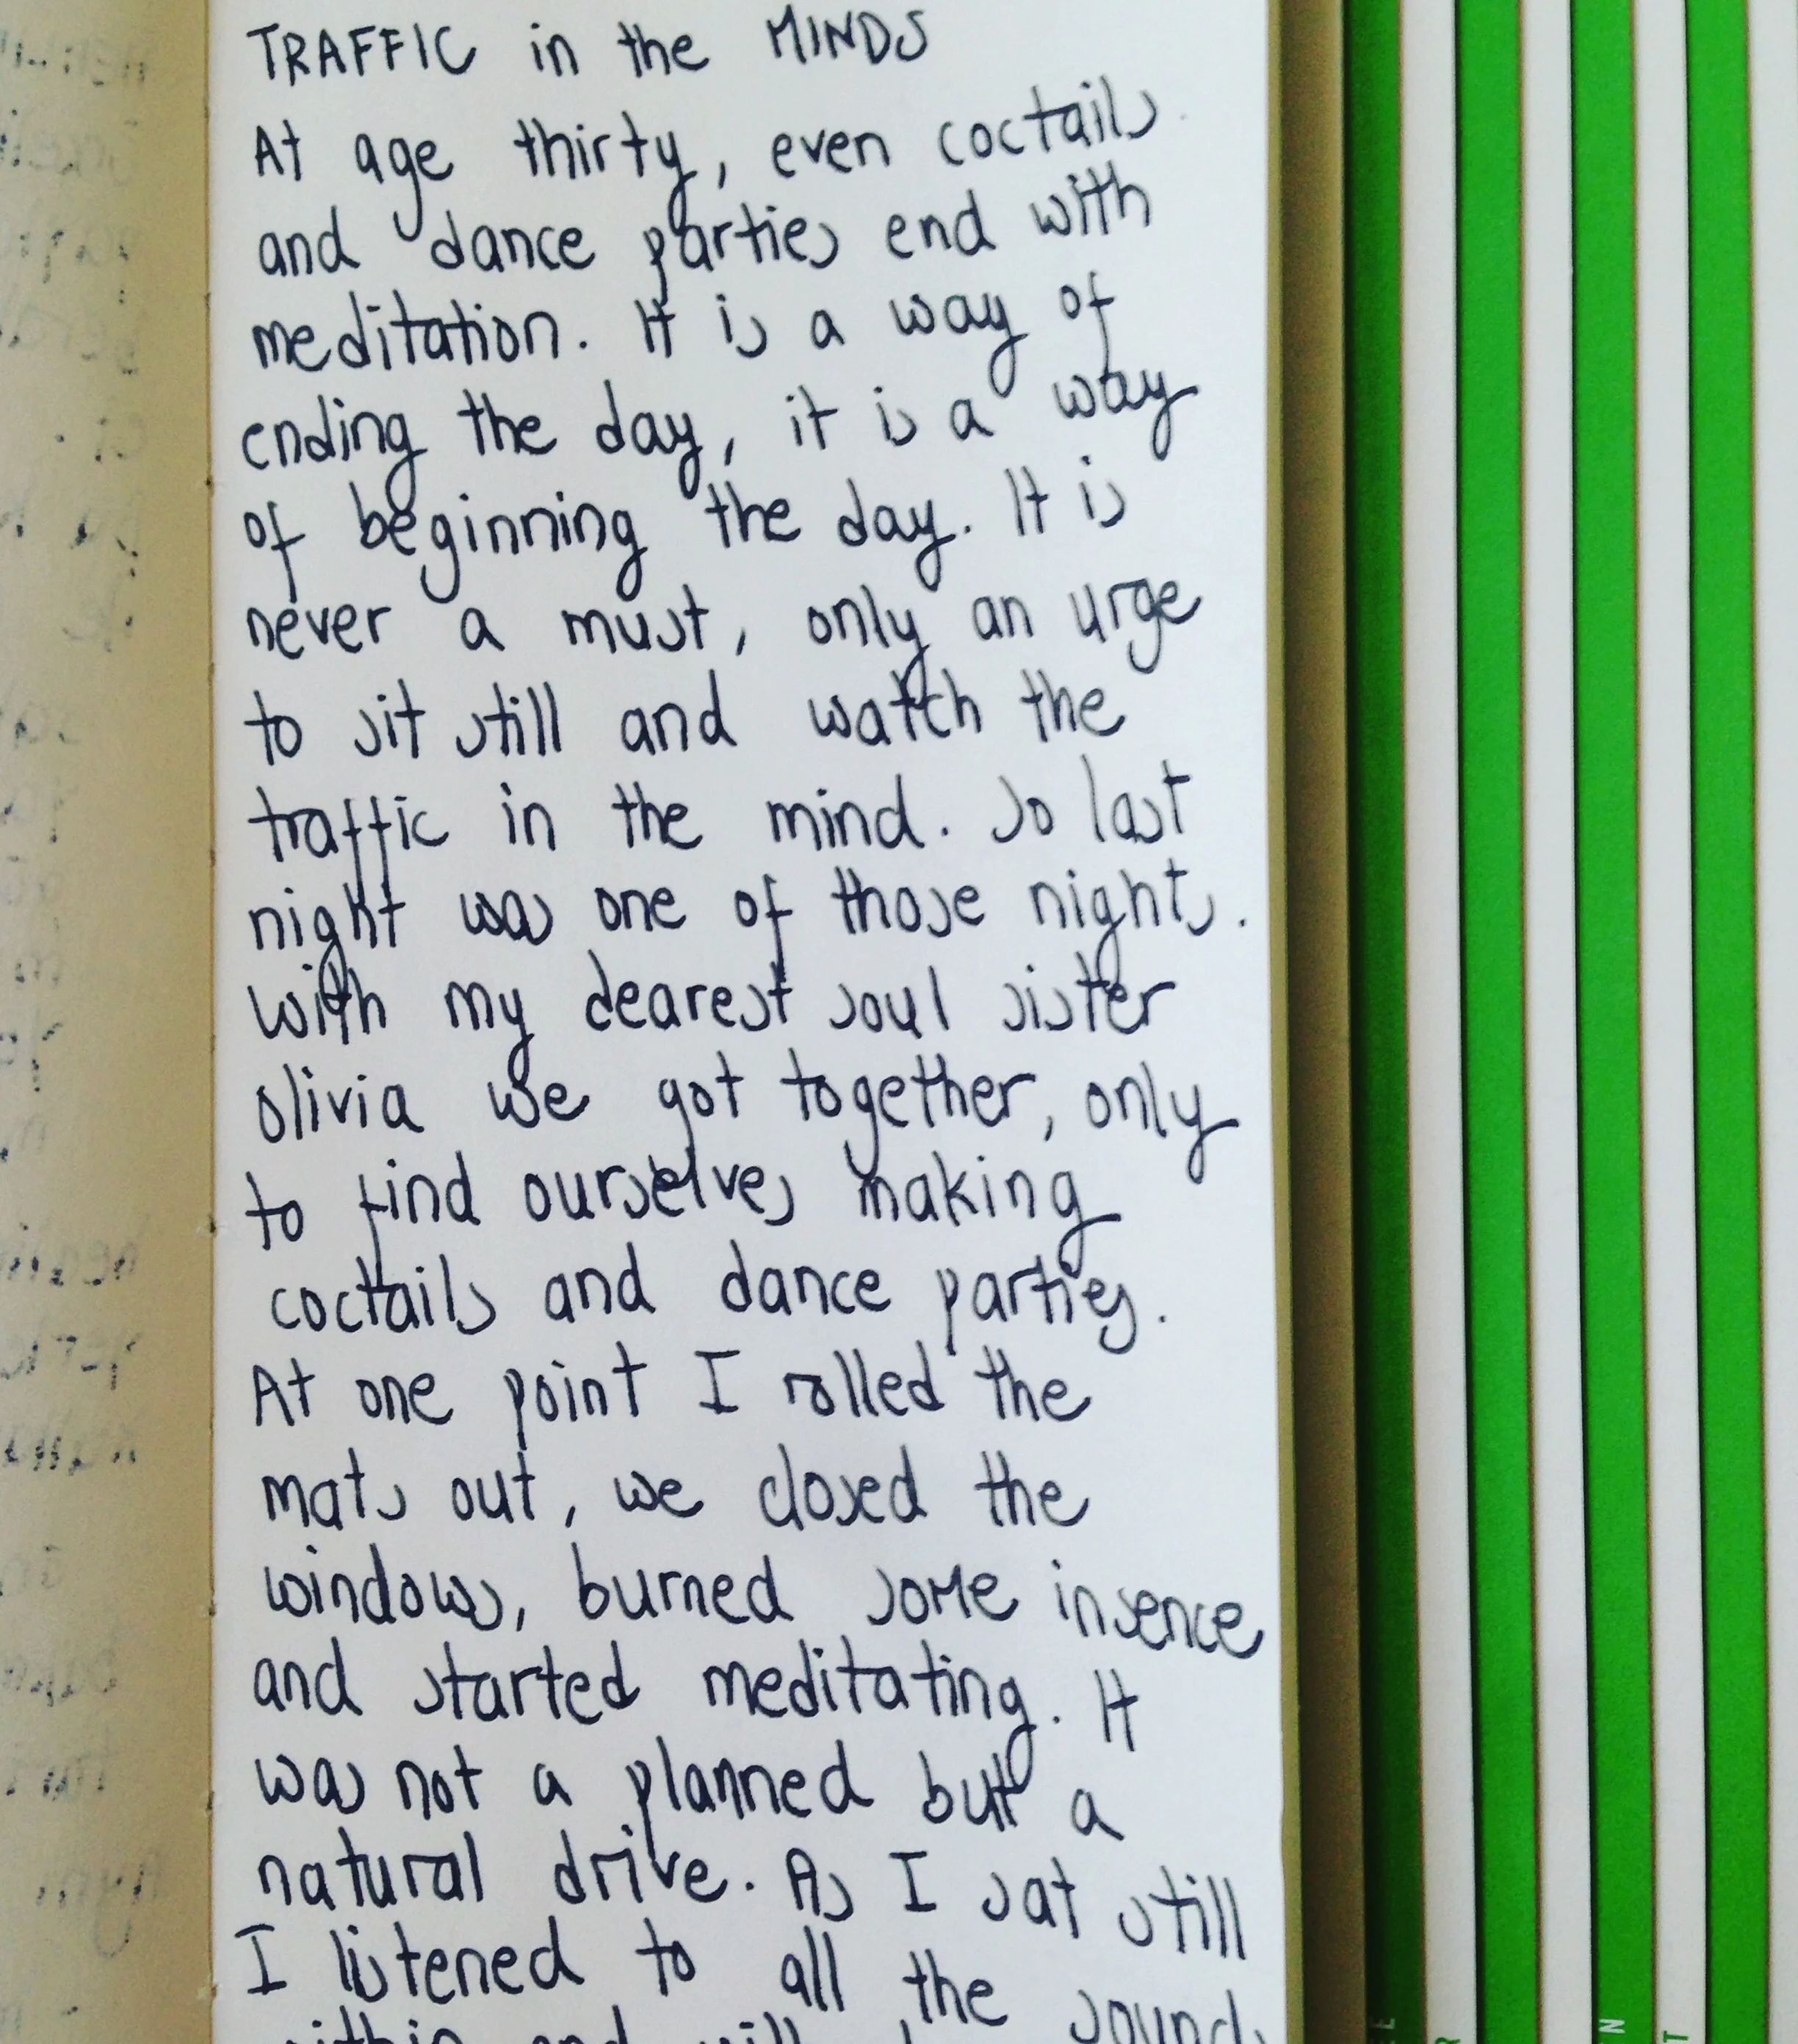 TRAFFIC in the MINDS
At age thirty, even coctails
and dance parties end with
meditation. It is a way of
ending the day, it is a way
of beginning the day. It is
never a must, only an urge
to sit still and watch the
traffic in the mind. So last
night was one of those nights.
With my dearest soul sister
olivia we got together, only
to find ourselves making
coctails and dance parties.
At one point I rolled the
mats out, we closed the
windows, burned some insence
and started meditating. It
was not a planned but a
natural drive. As I sat still
I listened to all the sounds
within and